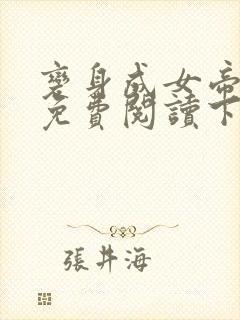 變身成女帝
免費閱讀下
張井海